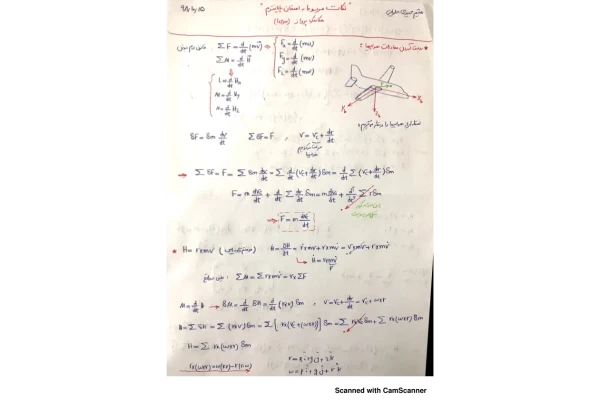 " نکات مربوط به امتحان پایانترم "
ΣF = d/dt (mv)
Fx = d/dt (mu)
Fy = d/dt (mv)
Fz = d/dt (mw)
ΣM = d/dt H
L = d/dt Hx
M = d/dt Hy
N = d/dt Hz
δF = δm dv/dt    ΣδF = F ,    v = vc + dr/dt
→ ΣδF = F = Σ δm dv/dt = Σ d/dt (vc + dr/dt) δm = d/dt Σ (vc + dr/dt) δm
F = m dvc/dt + d/dt Σ dr/dt δm = m dvc/dt + d²/dt² Σ r δm
→ F = m dvc/dt
* H = r×mv
Ḣ = dH/dt = ṙ×mv + r×mv̇ = v×mv + r×mv̇
ΣM = Σ r×mv̇ = r×ΣF
M = d/dt H → δM = d/dt δH = d/dt (r×v) δm ,    v = vc + dr/dt = vc + ω×r
H = Σ δH = Σ (r×v) δm = Σ [r×(vc + (ω×r))] δm = Σ r×vc δm + Σ r×(ω×r) δm
H = Σ r×(ω×r) δm
r×(ω×r) = ω(r·r) − r(r·ω)
r = xi + yj + zk
ω = pi + qj + rk
Scanned with CamScanner